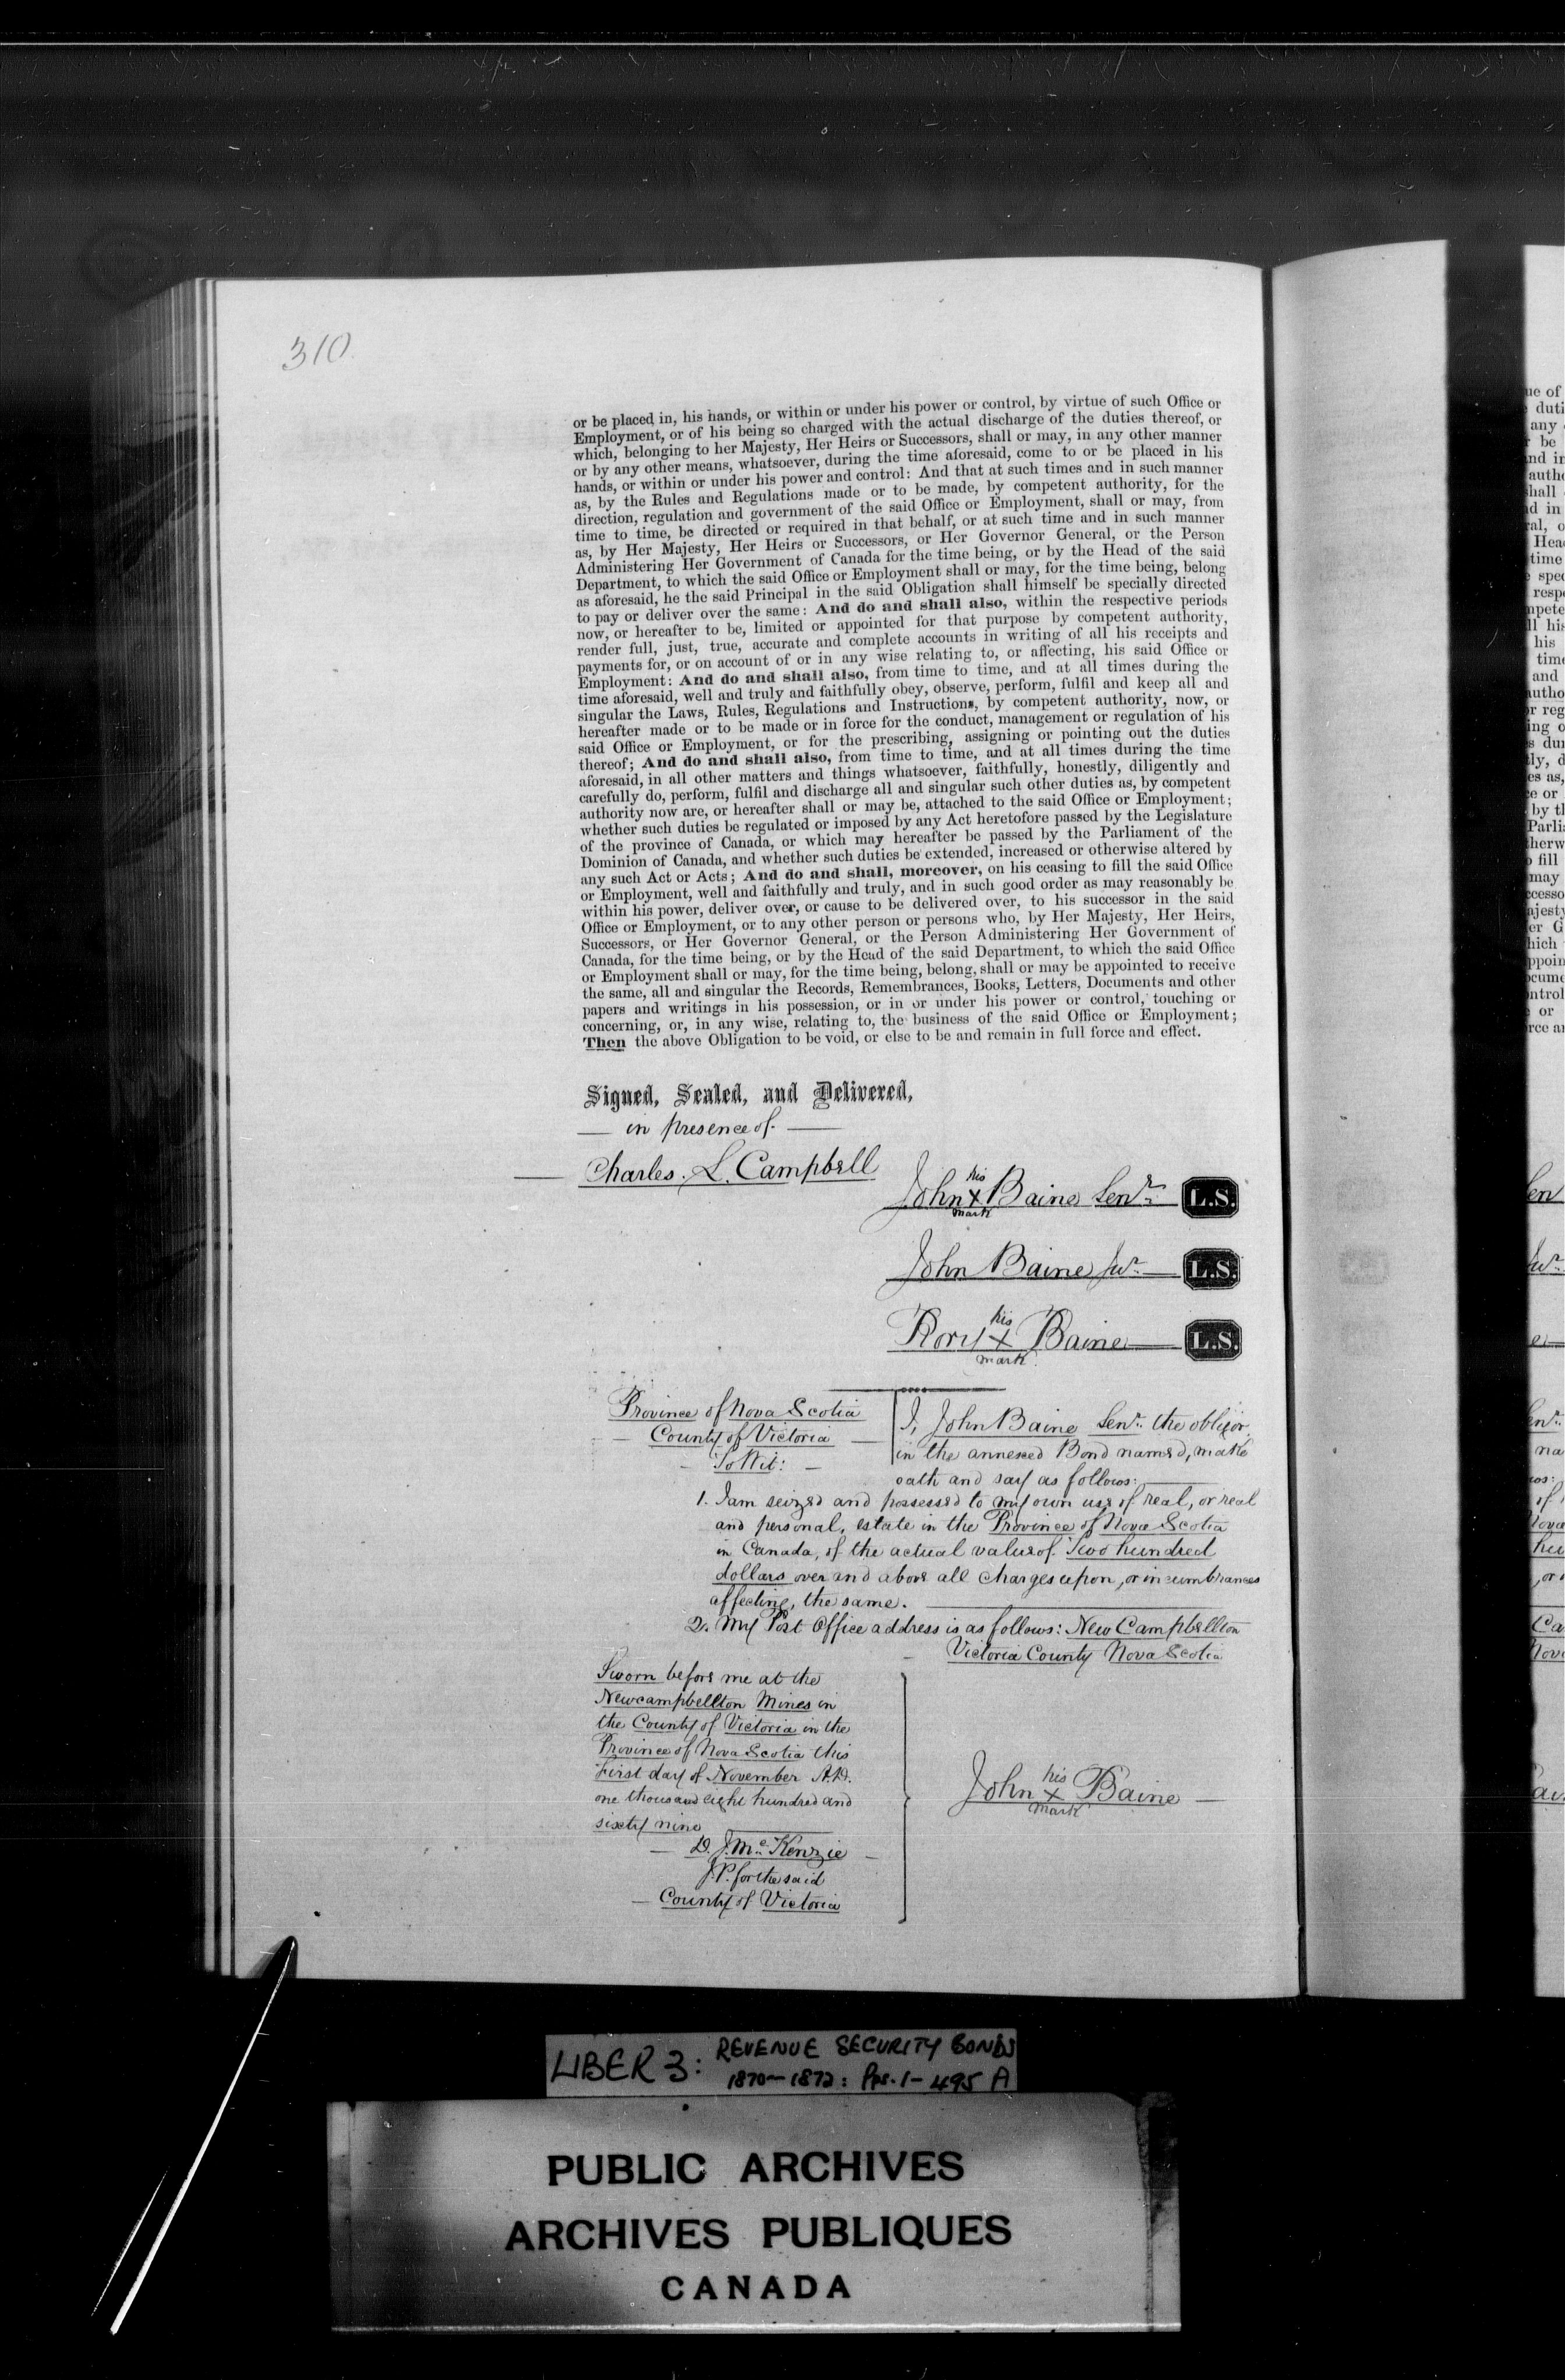 310
or be placed in, his hands, or within or under his power or control, by virtue of such Office or
Employment, or of his being so charged with the actual discharge of the duties thereof, or
which, belonging to her Majesty, Her Heirs or Successors, shall or may, in any other manner
or by any other means, whatsoever, during the time aforesaid, come to or be placed in his
hands, or within or under his power and control: And that at such times and in such manner
as, by the Rules and Regulations made or to be made, by competent authority, for the
direction, regulation and government of the said Office or Employment, shall or may, from
time to time, be directed or required in that behalf, or at such time and in such manner
as, by Her Majesty, Her Heirs or Successors, or Her Governor General, or the Person
Administering Her Government of Canada for the time being, or by the Head of the said
Department, to which the said Office or Employment shall or may, for the time being, belong
as aforesaid, he the said Principal in the said Obligation shall himself be specially directed
to pay or deliver over the same: And do and shall also, within the respective periods
now, or hereafter to be, limited or appointed for that purpose by competent authority,
render full, just, true, accurate and complete accounts in writing of all his receipts and
payments for, or on account of or in any wise relating to, or affecting, his said Office or
Employment: And do and shall also, from time to time, and at all times during the
time aforesaid, well and truly and faithfully obey, observe, perform, fulfil and keep all and
singular the Laws, Rules, Regulations and Instructions, by competent authority, now, or
hereafter made or to be made or in force for the conduct, management or regulation of his
said Office or Employment, or for the prescribing, assigning or pointing out the duties
thereof; And do and shall also, from time to time, and at all times during the time
aforesaid, in all other matters and things whatsoever, faithfully, honestly, diligently and
carefully do, perform, fulfil and discharge all and singular such other duties as, by competent
authority now are, or hereafter shall or may be, attached to the said Office or Employment;
whether such duties be regulated or imposed by any Act heretofore passed by the Legislature
of the province of Canada, or which may hereafter be passed by the Parliament of the
Dominion of Canada, and whether such duties be extended, increased or otherwise altered by
any such Act or Acts; And do and shall, moreover, on his ceasing to fill the said Office
or Employment, well and faithfully and truly, and in such good order as may reasonably be
within his power, deliver over, or cause to be delivered over, to his successor in the said
Office or Employment, or to any other person or persons who, by Her Majesty, Her Heirs,
Successors, or Her Governor General, or the Person Administering Her Government of
Canada, for the time being, or by the Head of the said Department, to which the said Office
or Employment shall or may, for the time being, belong, shall or may be appointed to receive
the same, all and singular the Records, Remembrances, Books, Letters, Documents and other
papers and writings in his possession, or in or under his power or control, touching or
concerning, or, in any wise, relating to, the business of the said Office or Employment;
Then the above Obligation to be void, or else to be and remain in full force and effect.
Signed, Sealed, and Delivered,
— in presence of —
Charles. L. Campbell
John his X mark Baine Senr. L.S.
John Baine Jur. L.S.
Rory his X mark Baine L.S.
Province of Nova Scotia
County of Victoria
To Wit:
I, John Baine Senr. the obligor
in the annexed Bond named, make
oath and say as follows:
1. I am seized and possessed to my own use of real, or real
and personal, estate in the Province of Nova Scotia
in Canada, of the actual value of Two hundred
dollars over and above all charges upon, or incumbrances
affecting, the same.
2. My Post Office address is as follows: New Campbellton
Victoria County Nova Scotia
Sworn before me at the
Newcampbellton Mines in
the County of Victoria in the
Province of Nova Scotia this
first day of November A.D.
one thousand eight hundred and
sixty nine
D. J. Mc. Kenzie
J.P. for the said
County of Victoria
John his X mark Baine
LIBER 3: REVENUE SECURITY BONDS
1870-1872: Pps. 1-495 A
PUBLIC ARCHIVES
ARCHIVES PUBLIQUES
CANADA